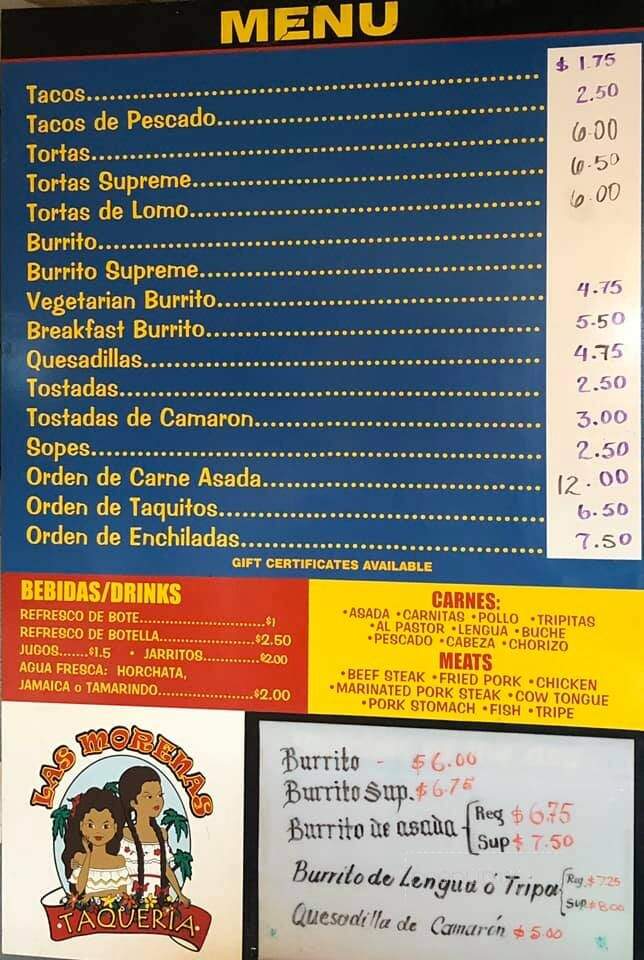 MENU
Tacos........ $ 1.75
Tacos de Pescado........ 2.50
Tortas........ 6.00
Tortas Supreme........ 6.50
Tortas de Lomo........ 6.00
Burrito........
Burrito Supreme........
Vegetarian Burrito........ 4.75
Breakfast Burrito........ 5.50
Quesadillas........ 4.75
Tostadas........ 2.50
Tostadas de Camaron........ 3.00
Sopes........ 2.50
Orden de Carne Asada........ 12.00
Orden de Taquitos........ 6.50
Orden de Enchiladas........ 7.50
GIFT CERTIFICATES AVAILABLE
BEBIDAS/DRINKS
REFRESCO DE BOTE........$1
REFRESCO DE BOTELLA........$2.50
JUGOS.......$1.5 • JARRITOS........$2.00
AGUA FRESCA: HORCHATA,
JAMAICA o TAMARINDO........$2.00
CARNES:
•ASADA •CARNITAS •POLLO •TRIPITAS
•AL PASTOR •LENGUA •BUCHE
•PESCADO •CABEZA •CHORIZO
MEATS
•BEEF STEAK •FRIED PORK •CHICKEN
•MARINATED PORK STEAK •COW TONGUE
•PORK STOMACH •FISH •TRIPE
LAS MORENAS
•TAQUERIA•
Burrito - $6.00
Burrito Sup. $6.75
Burrito de asada - Reg $6.75
Sup $7.50
Burrito de Lengua ó Tripa Reg. $7.25
Sup $8.00
Quesadilla de Camarón $5.00